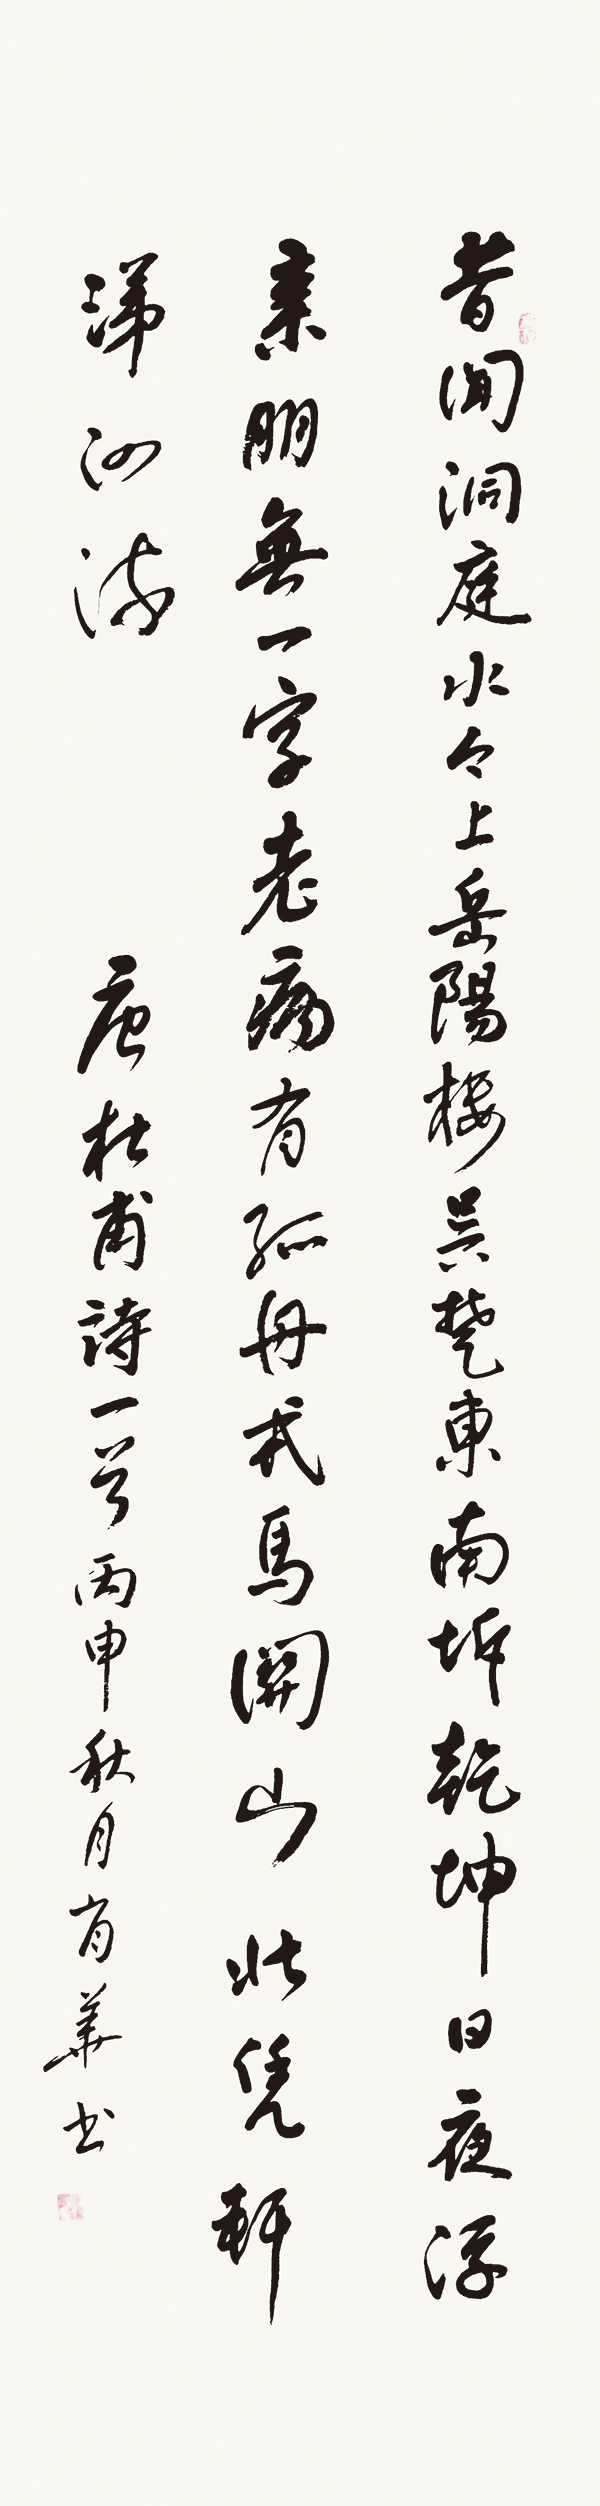 昔聞洞庭水今上岳陽樓吳楚東南坼乾坤日夜浮
亲朋無一字老病有孤舟戎馬關山北凭軒
涕泗流
唐杜甫詩一首丙申秋月有華书